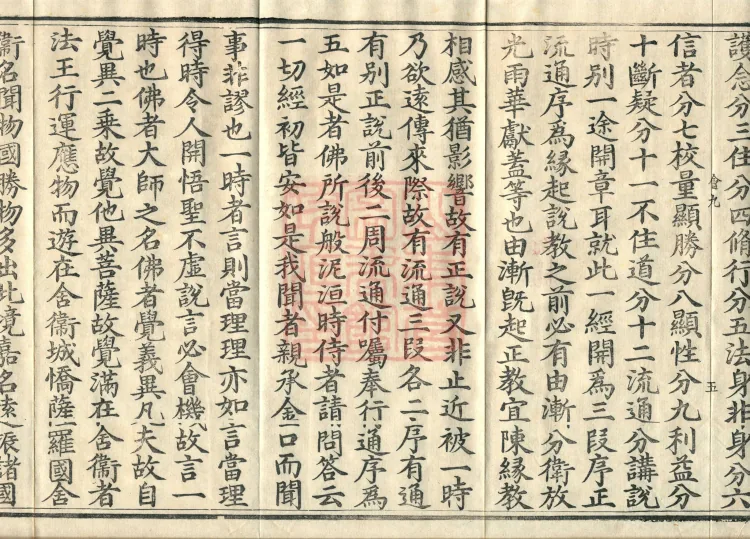 護念分三住分四脩行分五法身非身分六
會九
五
信者分七校量顯勝分八顯性分九利益分
十斷疑分十一不住道分十二流通分講說
時別一途開章耳就此一經開爲三段序正
流通序爲緣起說教之前必有由漸分衛放
光雨華獻蓋等也由漸旣起正教宜陳緣教
相感其猶影響故有正說又非止近被一時
乃欲遠傳來際故有流通三段各二序有通
有別正說前後二周流通付囑奉行通序爲
五如是者佛所說般泥洹時侍者請問答云
一切經初皆安如是我聞者親承金口而聞
事非謬也一時者言則當理理亦如言當理
得時令人開悟聖不虛說言必會機故言一
時也佛者大師之名佛者覺義異凡夫故自
覺異二乘故覺他異菩薩故覺滿在舍衞者
法王行運應物而遊在舍衞城憍薩羅國舍
衞名聞物國勝物多出此境嘉名遠振諸國